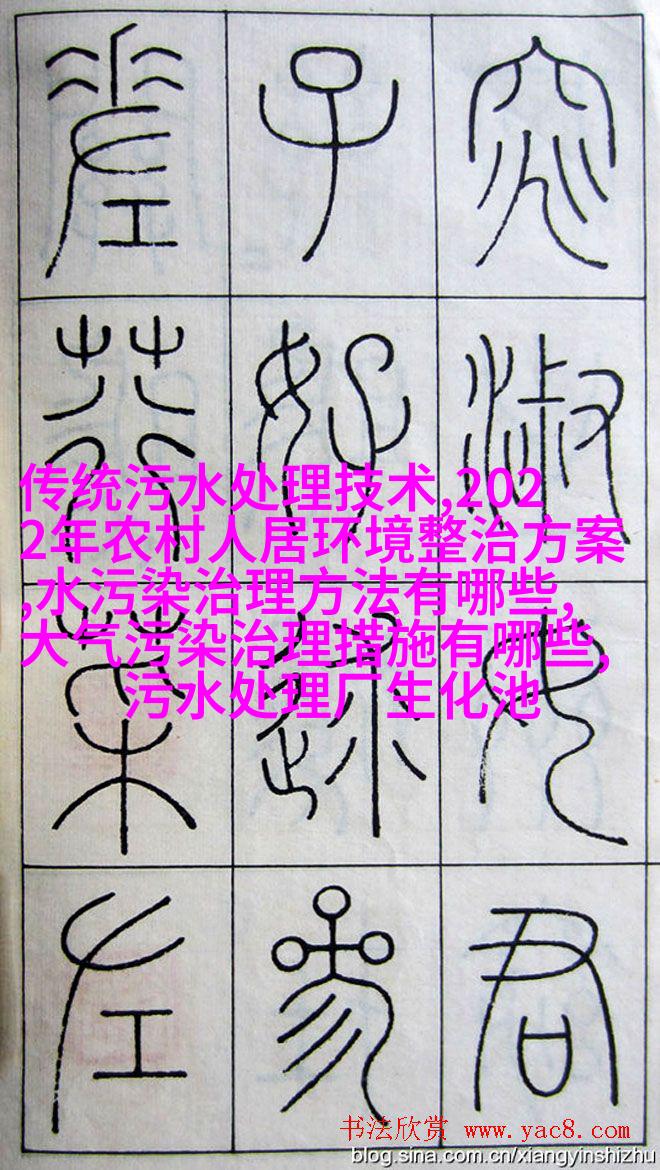 窕淑女君
子好逑参
差荇菜左
传统污水处理技术,202
2年农村人居环境整治方案
,水污染治理方法有哪些,
大气污染治理措施有哪些,
污水处理厂生化池
书法欣赏 www.yac8.com
blog.sina.com.cn/xiangyinshizhu